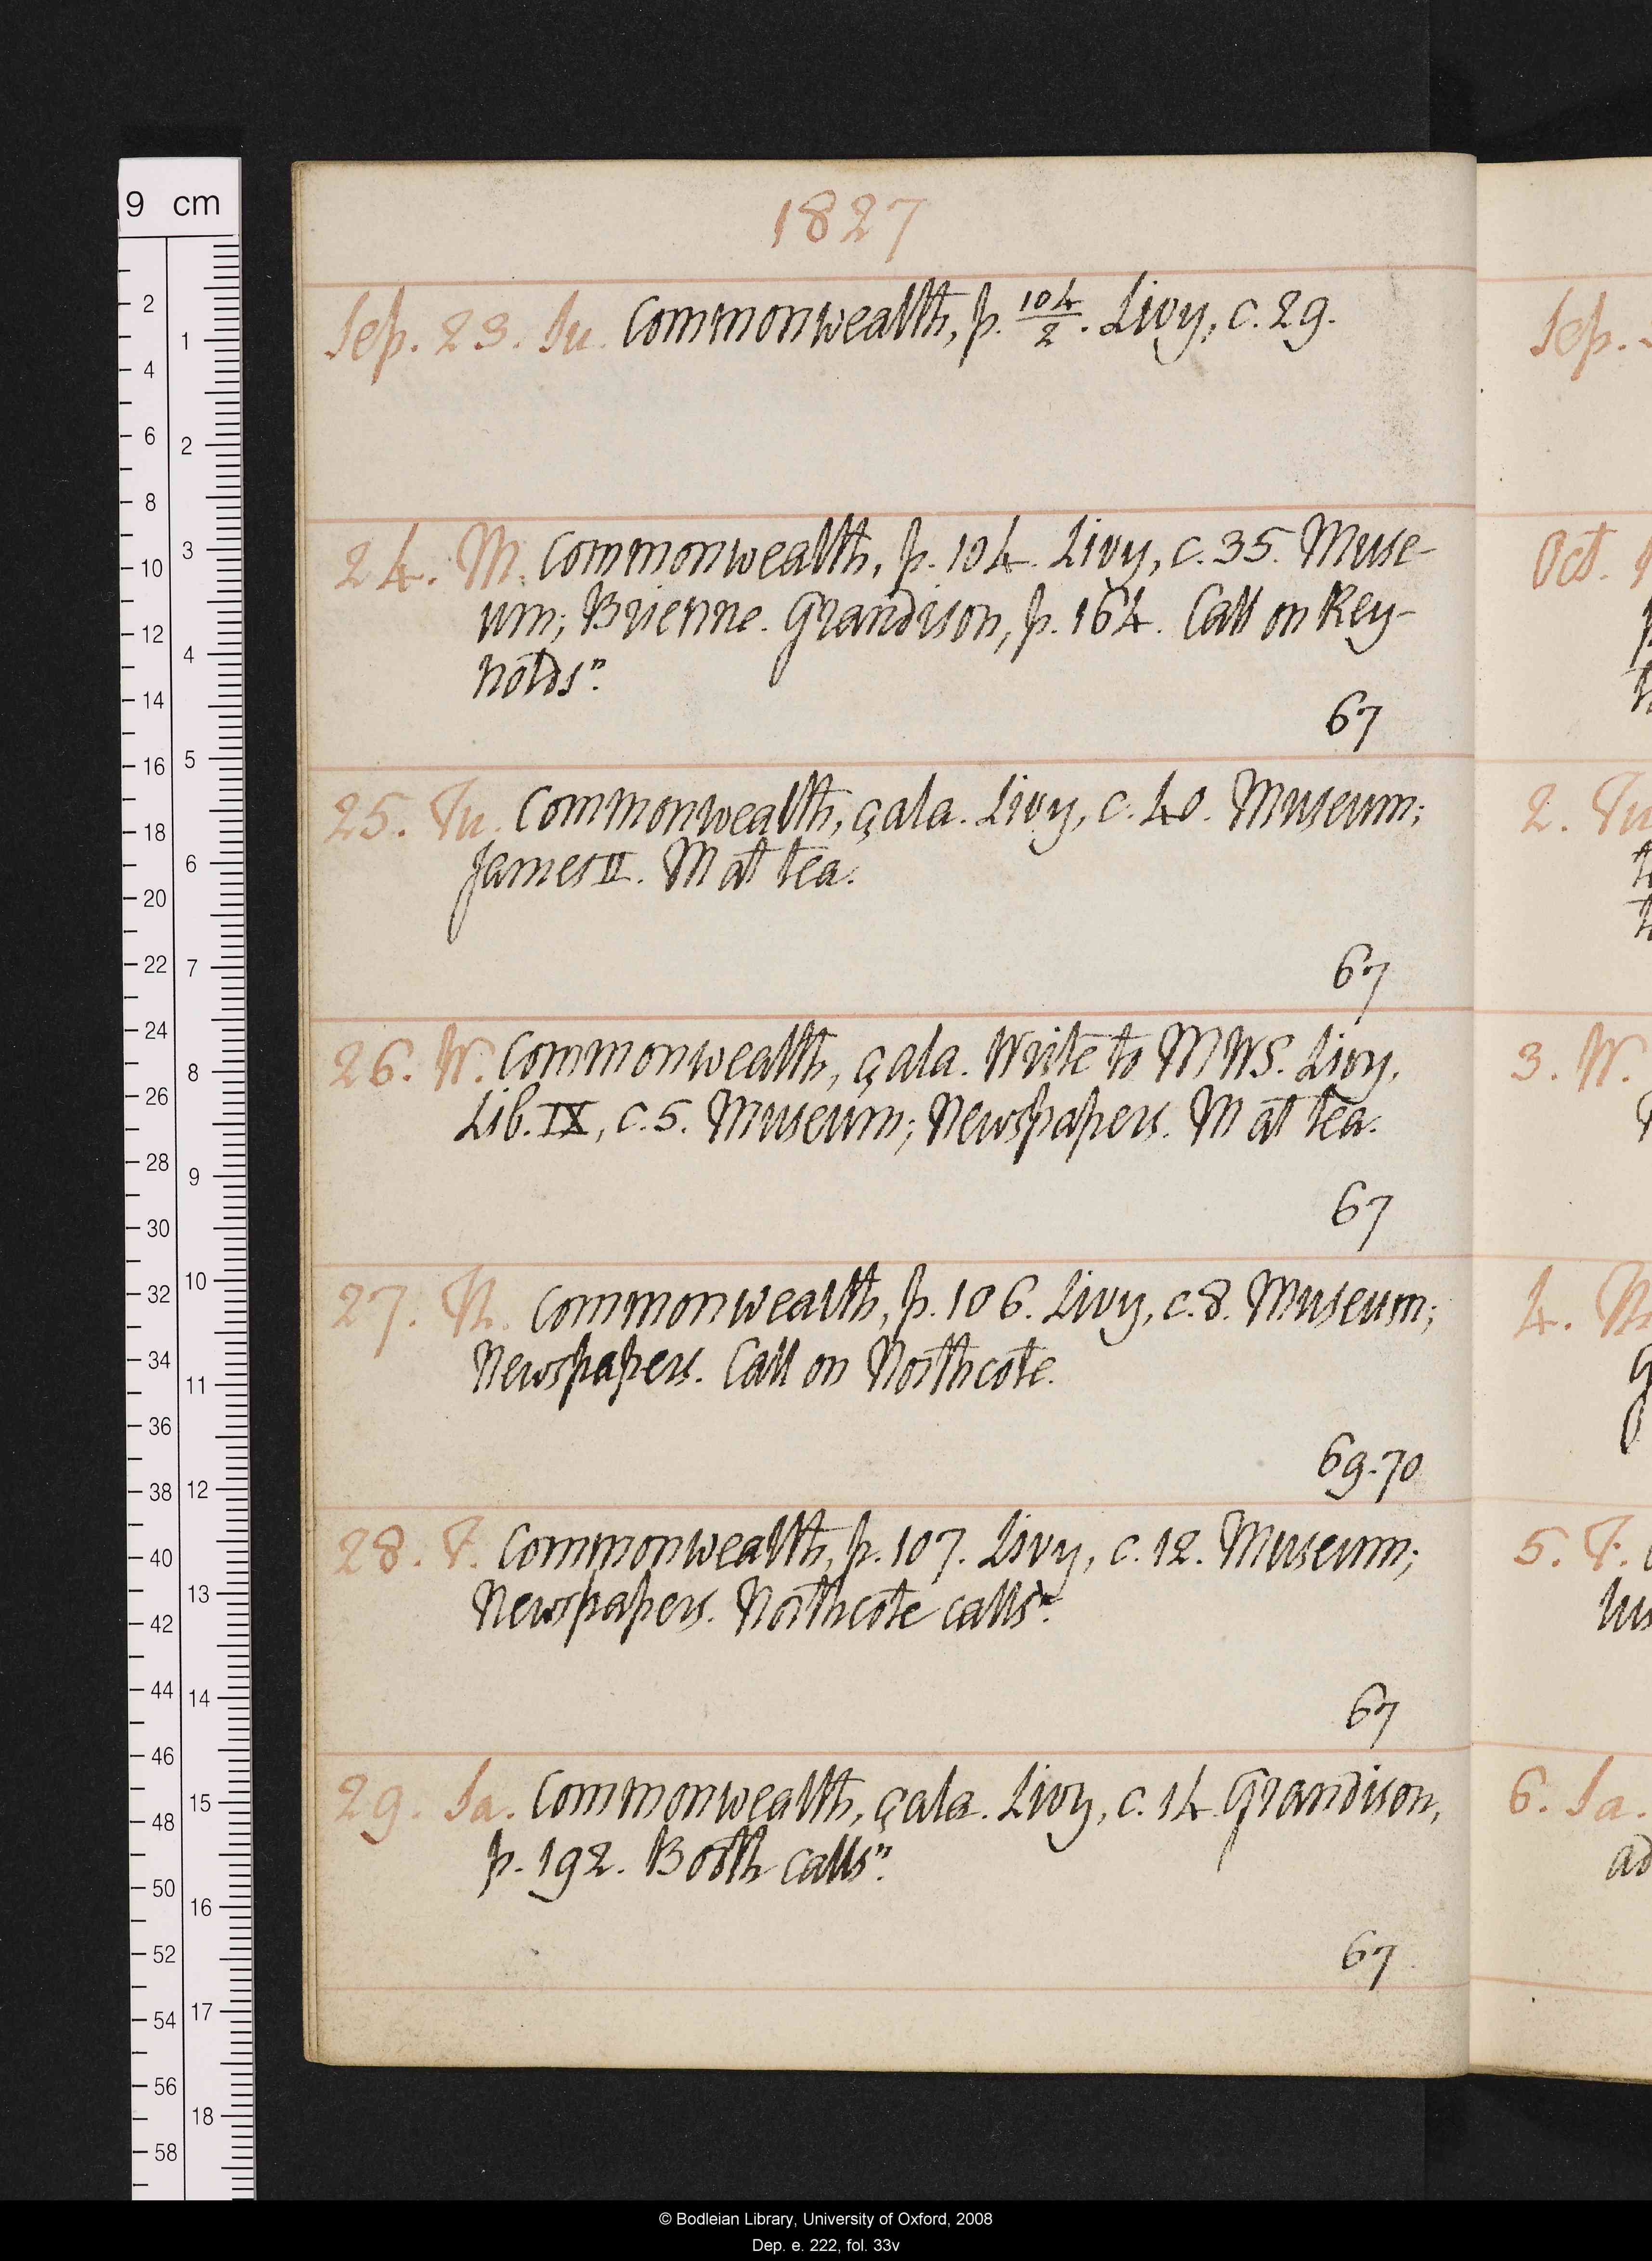 1827
Sep. 23. Su. Commonwealth, p. 104/2. Livy, c. 29.
24. M. Commonwealth, p. 104. Livy, c. 35. Muse-
um; Brienne. Grandison, p. 164. Call on Rey-
nolds n.
67
25. Tu. Commonwealth, çala. Livy, c. 40. Museum;
James II. M at tea.
67
26. W. Commonwealth, çala. Write to MWS. Livy,
Lib. IX, c. 5. Museum; Newspapers. M at tea.
67
27. Th. Commonwealth, p. 106. Livy, c. 8. Museum;
Newspapers. Call on Northcote.
69.70
28. F. Commonwealth, p. 107. Livy, c. 12. Museum;
Newspapers. Northcote calls n.
67
29. Sa. Commonwealth, çala. Livy, c. 14. Grandison,
p. 192. Booth calls n.
67
Sep.
Oct.
2. Tu
3. W.
4. Th
5. F.
6. Sa.
ad
9 cm
2
4
6
8
10
12
14
16
18
20
22
24
26
28
30
32
34
36
38
40
42
44
46
48
50
52
54
56
58
1
2
3
4
5
6
7
8
9
10
11
12
13
14
15
16
17
18
© Bodleian Library, University of Oxford, 2008
Dep. e. 222, fol. 33v